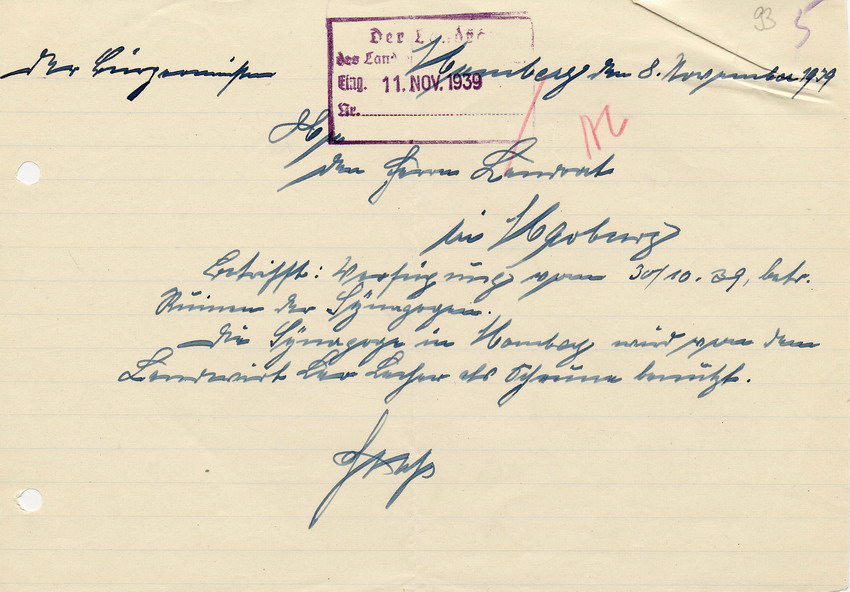 93 5
Der Landr
des Land
Eing. 11. NOV. 1939
Nr.
Der Bürgermeister
Homberg den 8. November 1939
An
den Herrn Landrat
in Marburg
Betrifft: Verfügung vom 30/10.39, betr.
Ruinen der Synagogen.
Die Synagoge in Homberg wird von dem
Landwirt als Scheune benützt.